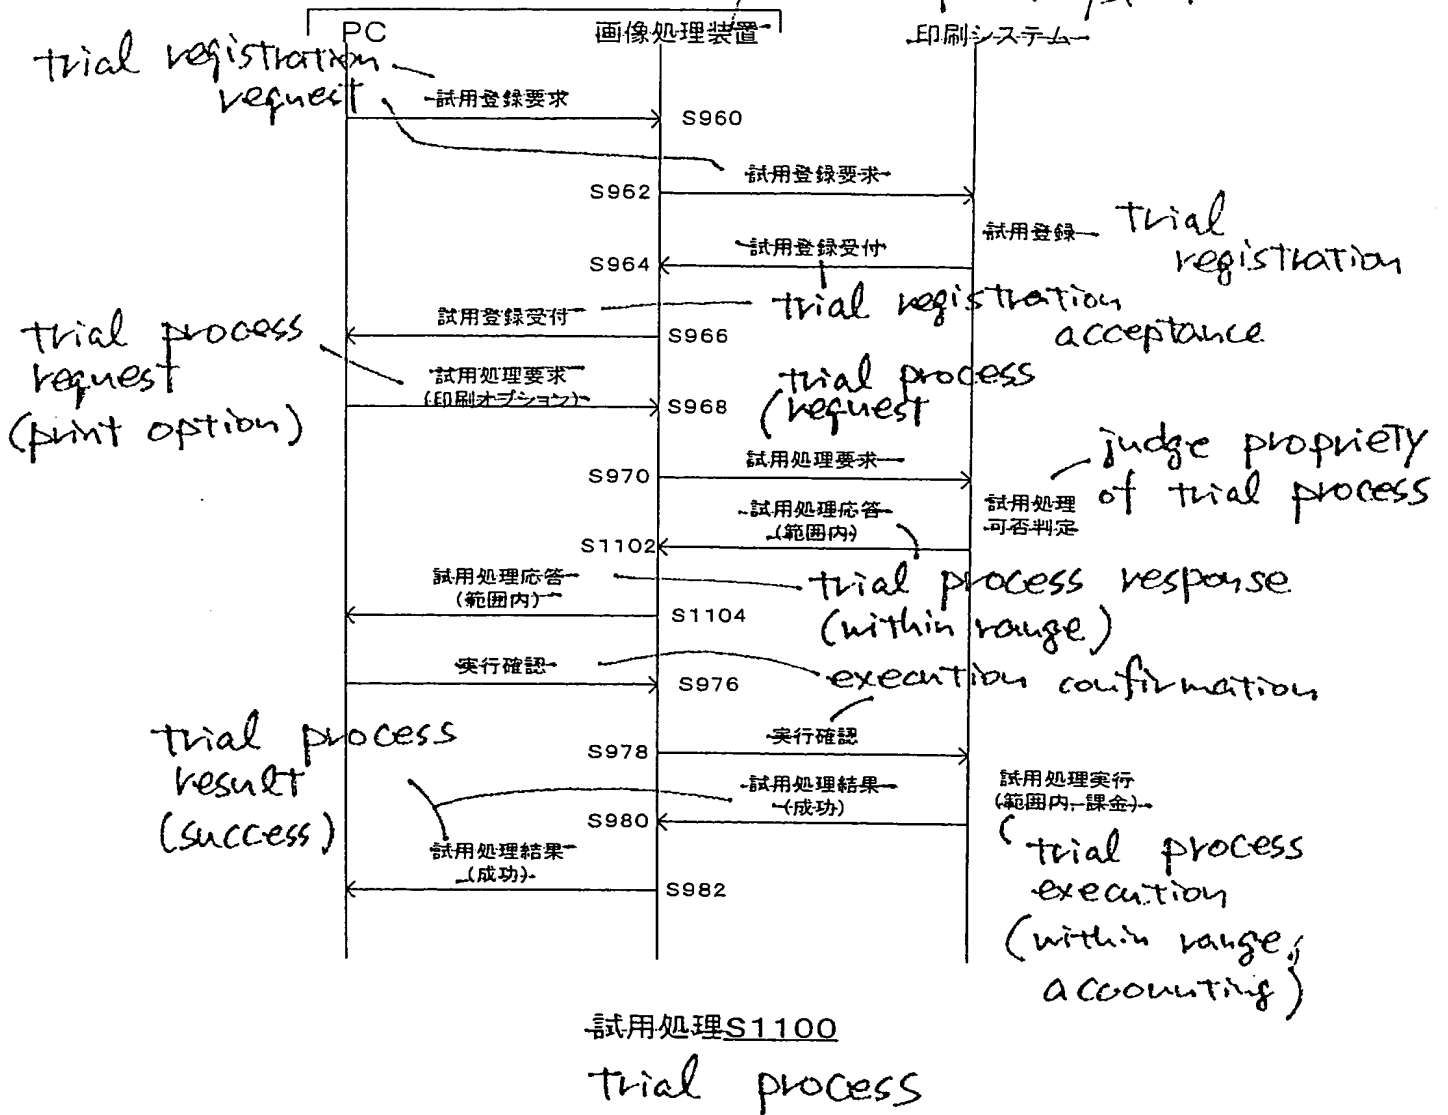 PC
画像処理装置
印刷システム
trial registration
request
試用登録要求
S960
試用登録要求
S962
試用登録
trial
registration
試用登録受付
S964
試用登録受付
trial registration
acceptance
S966
trial process
request
(print option)
試用処理要求
(印刷オプション)
S968
trial process
request
試用処理要求
S970
judge propriety
of trial process
試用処理
可否判定
試用処理応答
(範囲内)
S1102
試用処理応答
(範囲内)
trial process response
(within range)
S1104
実行確認
execution confirmation
S976
trial process
result
(success)
実行確認
S978
試用処理結果
(成功)
S980
試用処理実行
(範囲内, 課金)
trial process
execution
(within range,
accounting)
試用処理結果
(成功)
S982
試用処理S1100
trial process